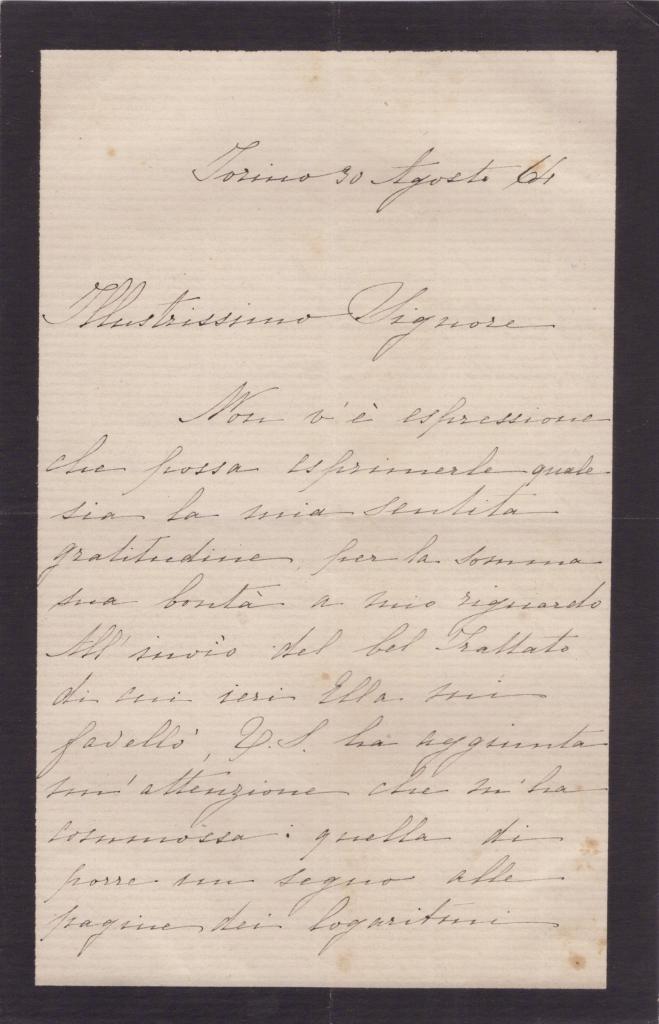 Torino 30 Agosto 64
Illustrissimo Signore
Non v'è espressione
che possa esprimerle quale
sia la mia sentita
gratitudine, per la somma
sua bontà a mio riguardo
All'invio del bel Trattato
di cui ieri Ella mi
favellò, V.S. ha aggiunta
un'attenzione che m'ha
commossa: quella di
porre un segno alle
pagine dei logaritmi